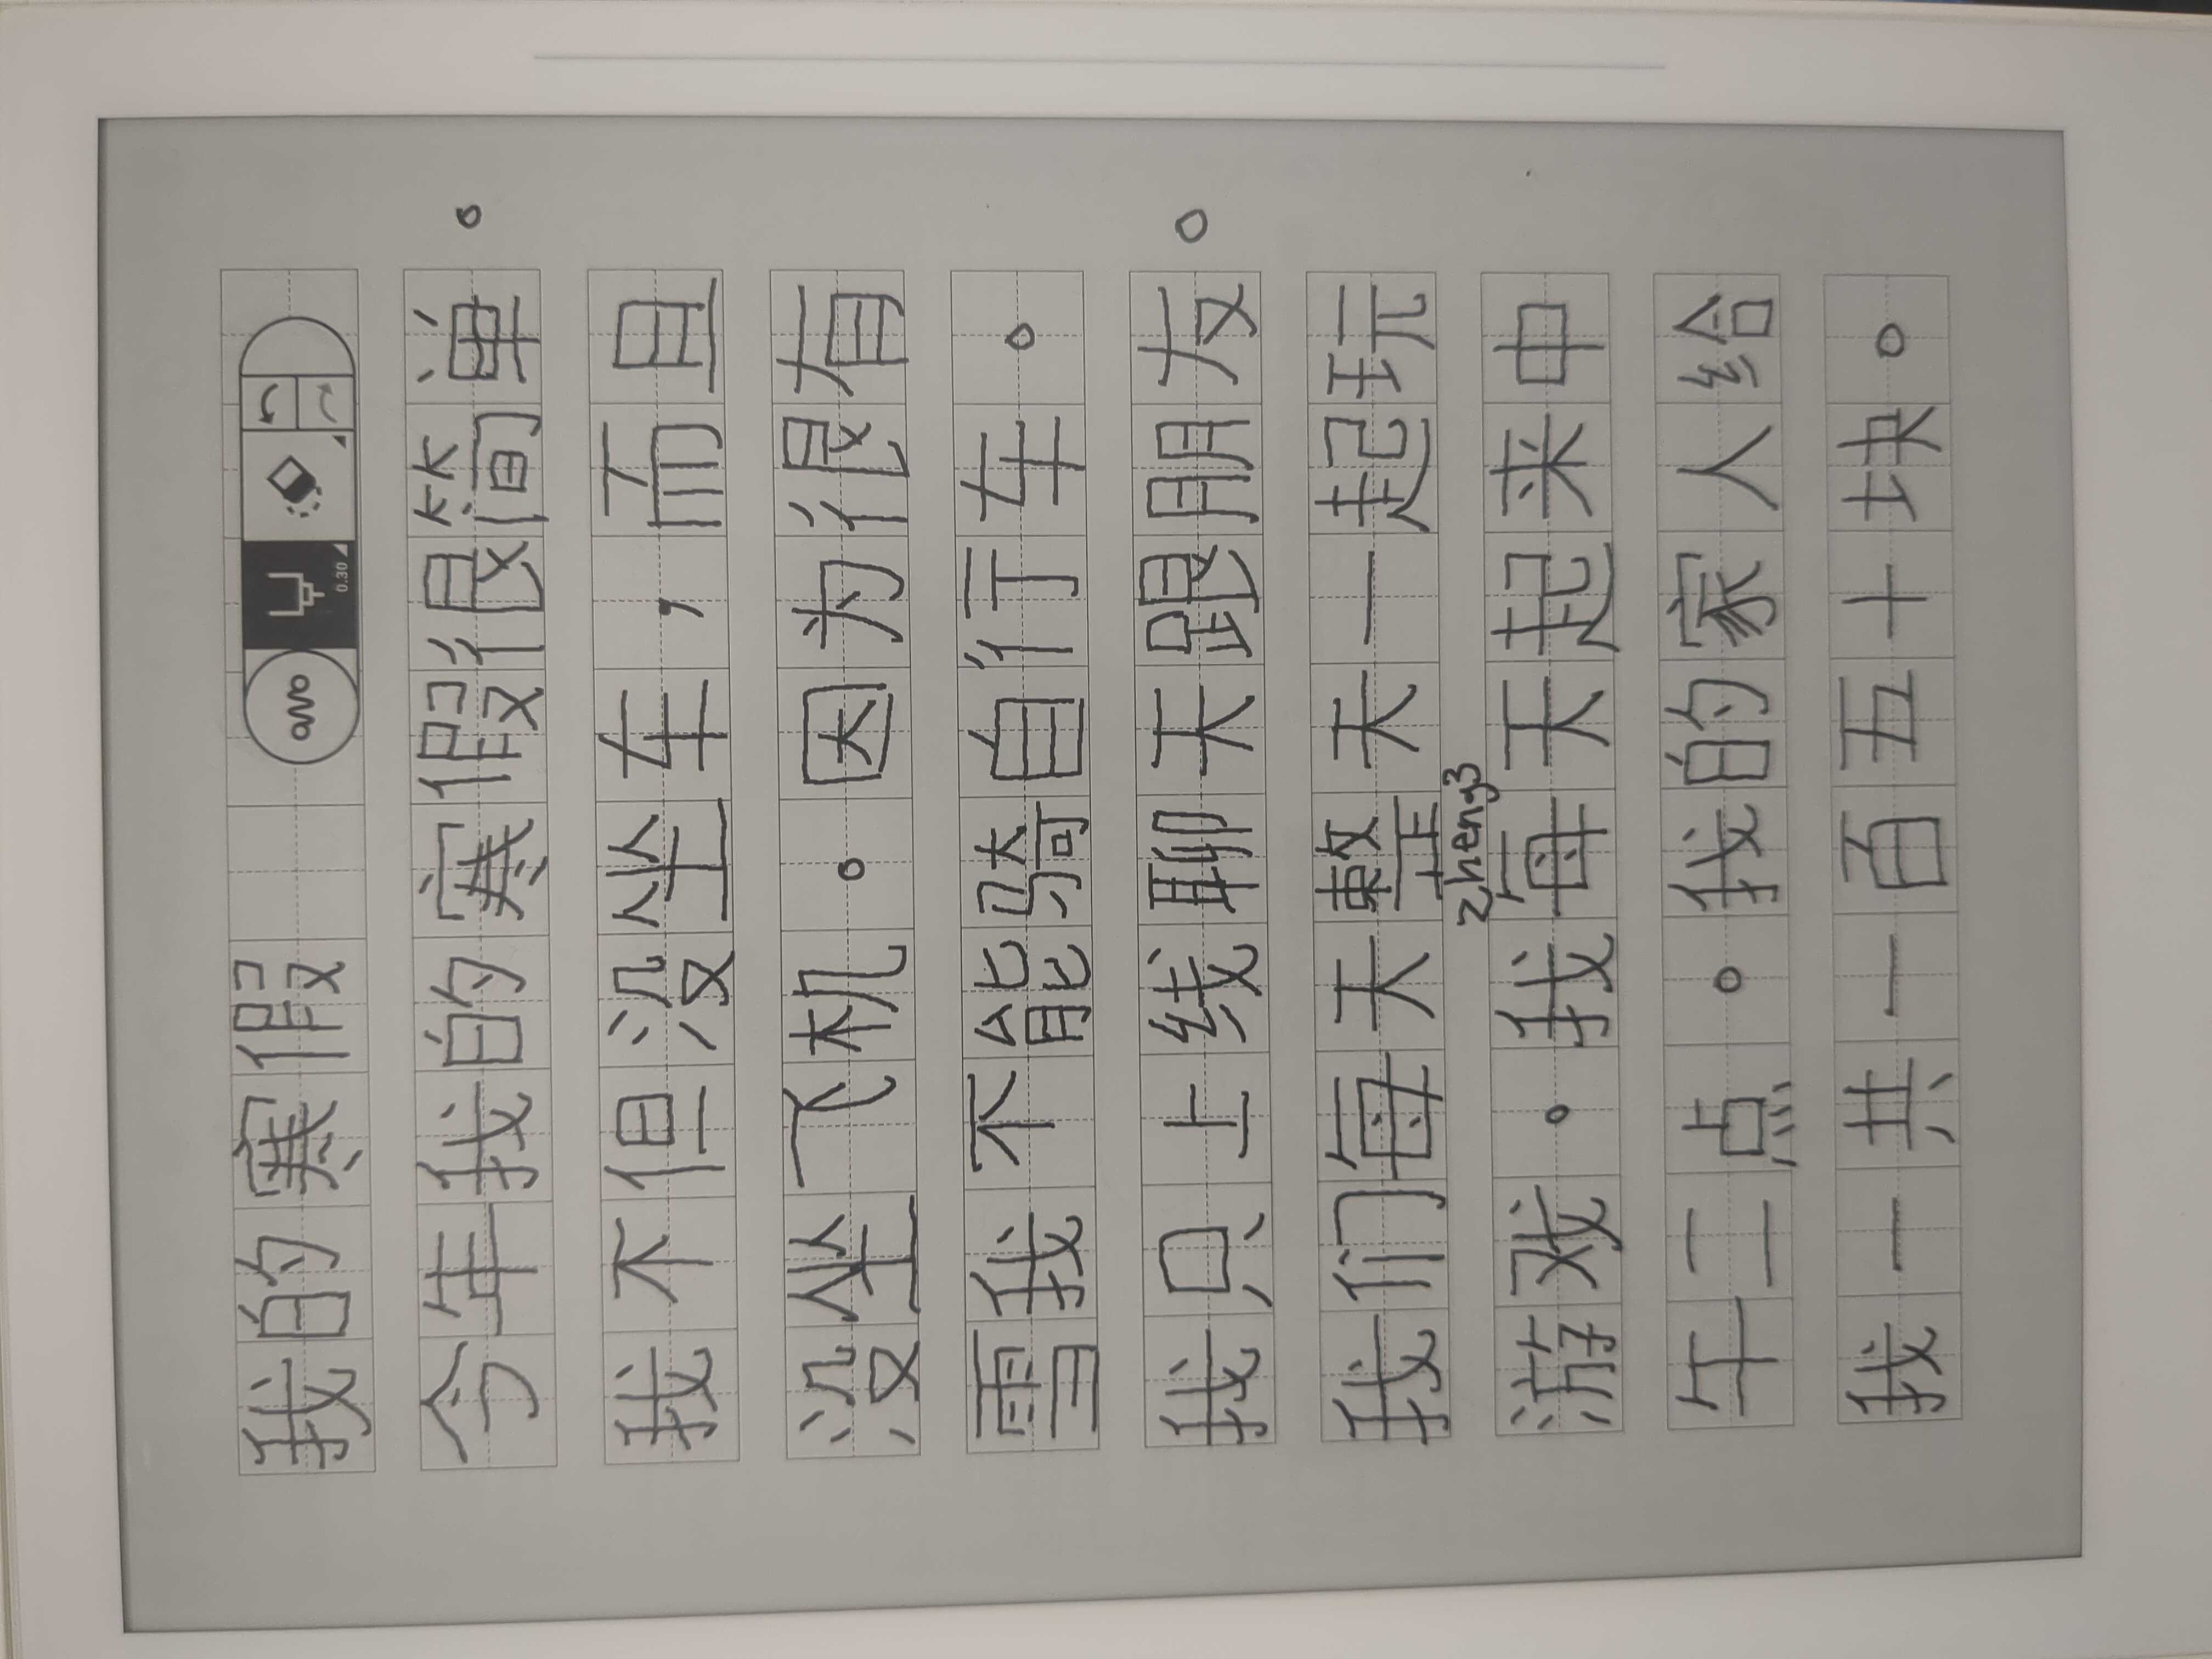 我的寒假
0.30
今年我的寒假很简单。
我不但没坐车，而且
没坐飞机。因为很有
雪我不能骑自行车。
我只上线聊天跟朋友。
我们每天整天一起玩
zheng3
游戏。我每天起来中
午二点。我的家人给
我一共一百五十块。